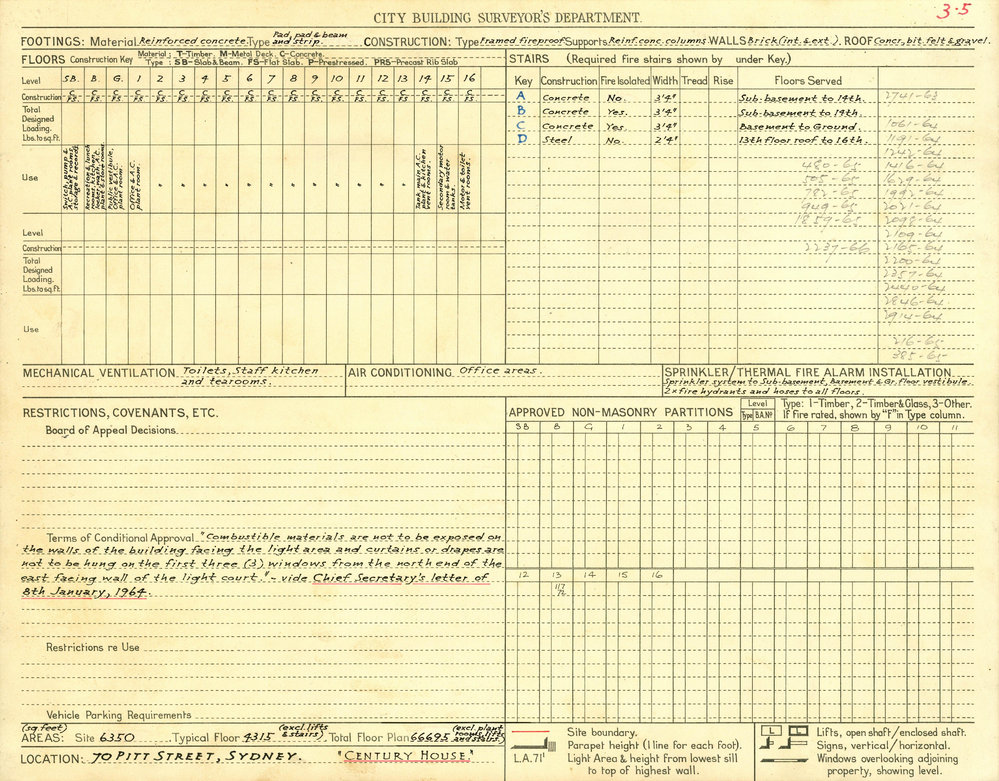 CITY BUILDING SURVEYOR'S DEPARTMENT.
3·5
FOOTINGS: Material Reinforced concrete Type Pad, pad & beam and strip. CONSTRUCTION: Type Framed fireproof Supports Reinf. conc. columns WALLS Brick (int. & ext.). ROOF Concr, bit. felt & gravel.
FLOORS Construction Key Material: T-Timber. M-Metal Deck. C-Concrete.
Type: SB-Slab & Beam. FS-Flat Slab. P-Prestressed. PRS-Precast Rib Slab
Level SB. B. G. 1 2 3 4 5 6 7 8 9 10 11 12 13 14 15 16
Construction C C C C C C C C C C C C C C C C C C C
FS. FS. FS. FS. FS. FS. FS. FS. FS. FS. FS. FS. FS. FS. FS. FS. FS. FS. FS.
Total
Designed
Loading.
Lbs. to sq. ft.
Use
Switch, pump & A.C. plant rooms, storage & records.
Public vestibule, Office & A.C. plant room.
Office & A.C. plant room.
" " " " " " " " " " " "
Tank, main A.C. plant & kitchen vent rooms.
Secondary motor room & water tanks.
Motor & toilet vent rooms.
Level
Construction
Total
Designed
Loading.
Lbs. to sq. ft.
Use
STAIRS (Required fire stairs shown by under Key.)
Key Construction Fire Isolated Width Tread Rise Floors Served
A Concrete No. 3'4" Sub-basement to 14th.
B Concrete Yes. 3'4" Sub-basement to 14th.
C Concrete Yes. 3'4" Basement to Ground.
D Steel No. 2'4" 13th floor roof to 16th.
2741-63
1061-64
1191-64
1242-64
480-65 1416-64
505-65 1629-64
782-65 1992-64
949-65 2021-64
1859-65 2098-64
2109-64
2237-66 2165-64
2200-64
2357-64
2440-64
2846-64
2914-64
216-65
385-65
MECHANICAL VENTILATION Toilets, Staff kitchen
and tearooms.
AIR CONDITIONING Office areas.
SPRINKLER/THERMAL FIRE ALARM INSTALLATION
Sprinkler system to Sub-basement, Basement & Gr. floor vestibule.
2 x fire hydrants and hoses to all floors.
RESTRICTIONS, COVENANTS, ETC.
Board of Appeal Decisions.
Terms of Conditional Approval "Combustible materials are not to be exposed on
the walls of the building facing the light area and curtains or drapes are
not to be hung on the first three (3) windows from the north end of the
east facing wall of the light court." - vide Chief Secretary's letter of
8th January, 1964.
Restrictions re Use
Vehicle Parking Requirements
APPROVED NON-MASONRY PARTITIONS Level Type B.A.Nº Type: 1-Timber, 2-Timber & Glass, 3-Other.
If fire rated, shown by "F" in Type column.
SB B G 1 2 3 4 5 6 7 8 9 10 11
12 13 14 15 16
117
72
(sq. feet) (excl. lifts & stairs) (excl. plant rooms, lifts and stairs)
AREAS: Site 6350 Typical Floor 4315 Total Floor Plan 66695
LOCATION: 70 PITT STREET, SYDNEY. "CENTURY HOUSE"
Site boundary.
Parapet height (1 line for each foot).
L.A. 71' Light Area & height from lowest sill
to top of highest wall.
L L Lifts, open shaft/enclosed shaft.
Signs, vertical/horizontal.
Windows overlooking adjoining
property, showing level.